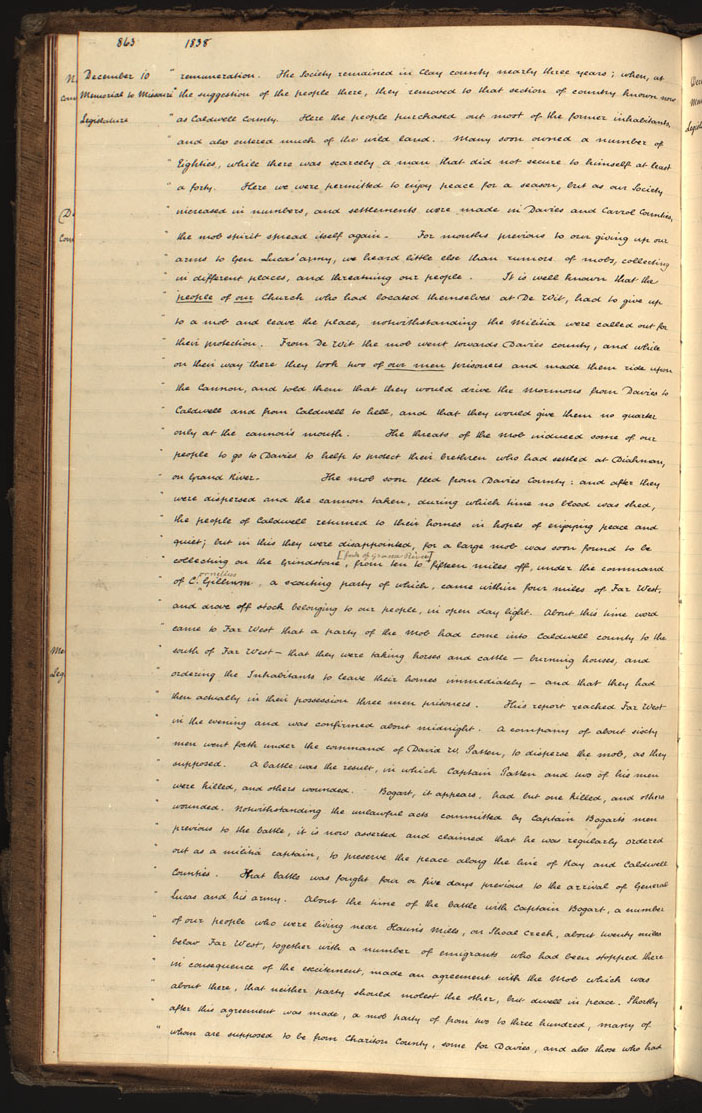 863 1838
December 10 " remuneration. The Society remained in Clay county nearly three years; when, at
Memorial to Missouri " the suggestion of the people there, they removed to that section of country known now
Legislature " as Caldwell County. Here the people purchased out most of the former inhabitants,
" and also entered much of the wild land. Many soon owned a number of
" Eighties, while there was scarcely a man that did not secure to himself at least
" a forty. Here we were permitted to enjoy peace for a season, but as our Society
" increased in numbers, and settlements were made in Davies and Carrol Counties,
" the mob spirit spread itself again. For months previous to our giving up our
" arms to Gen Lucas' army, we heard little else than rumors of mobs, collecting
" in different places, and threatning our people. It is well known that the
" people of our Church who had located themselves at De Wit, had to give up
" to a mob and leave the place, notwithstanding the Militia were called out for
" their protection. From De Wit the mob went towards Davies county, and while
" on their way there they took two of our men prisoners and made them ride upon
" the Cannon, and told them that they would drive the Mormons from Davies to
" Caldwell and from Caldwell to hell, and that they would give them no quarter
" only at the cannon's mouth. The threats of the Mob induced some of our
" people to go to Davies to help to protect their brethren who had settled at Diahman,
" on Grand River. The mob soon fled from Davies County: and after they
" were dispersed and the cannon taken, during which time no blood was shed,
" the people of Caldwell returned to their homes in hopes of enjoying peace and
" quiet; but in this they were disappointed, for a large mob was soon found to be
[fork of Grand River]
" collecting on the Grindstone, from ten to fifteen miles off, under the command
ornelius
" of C. Gillium, a scouting party of which, came within four miles of Far West,
" and drove off stock belonging to our people, in open day light. About this time word
" came to Far West that a party of the Mob had come into Caldwell county to the
" south of Far West — that they were taking horses and cattle — burning houses, and
" ordering the Inhabitants to leave their homes immediately — and that they had
" then actually in their possession three men prisoners. This report reached Far West
" in the evening and was confirmed about midnight. A company of about sixty
" men went forth under the command of David W. Patten, to disperse the mob, as they
" supposed. A battle was the result, in which Captain Patten and two of his men
" were killed, and others wounded. Bogart, it appears, had but one killed, and others
" wounded. Notwithstanding the unlawful acts committed by Captain Bogart's men
" previous to the battle, it is now asserted and claimed that he was regularly ordered
" out as a militia captain, to preserve the peace along the line of Ray and Caldwell
" Counties. That battle was fought four or five days previous to the arrival of General
" Lucas and his army. About the time of the battle with Captain Bogart, a number
" of our people who were living near Haun's Mills, on Shoal Creek, about twenty miles
" below Far West, together with a number of emigrants who had been stopped there
" in consequence of the excitement, made an agreement with the Mob which was
" about there, that neither party should molest the other, but dwell in peace. Shortly
" after this agreement was made, a mob party of from two to three hundred, many of
" whom are supposed to be from Chariton County, some for Davies, and also those who had